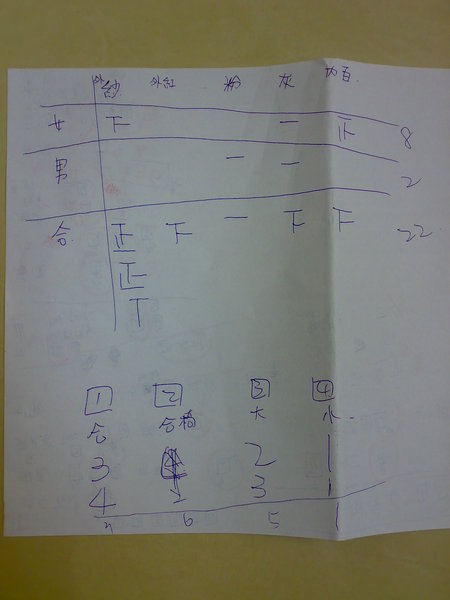 外 外紅 粉 灰 内百
女 下 一 正 8
男 一 一 2
合 正 下 一 下 下 22
正
丅
1 2 3 4
合 合 大 小
3 2 1
4 1 3 1
7 6 5 1